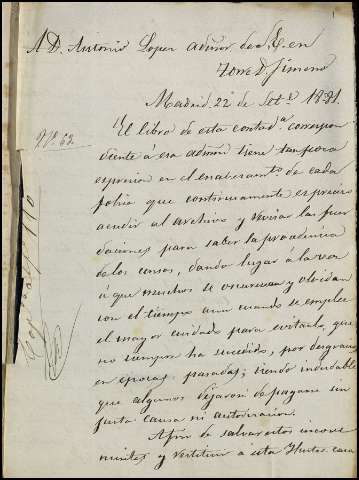 A D. Antonio Lopez admor. de S.E. en
Torre D. Jimeno
Madrid 22 de Set.e 1881.
Nº. 62
El libro de esta contad.a correspon
diente á esa admon tiene tan poca
espresion en el encabezamto. de cada
folio que continuamente es preciso
acudir al archivo y revisar las fun
daciones para saber la procedencia
de los censos, dando lugar á la vez
á que muchos se oscurezcan y olviden
con el tiempo aun cuando se emplee
el mayor cuidado para evitarlo, que
no siempre ha sucedido, por desgracia,
en épocas pasadas; siendo indudable
que algunos dejaron de pagarse sin
justa causa ni autorizacion.
Afin de salvar estos inconve
nientes y restituir á esta Ilustre casa